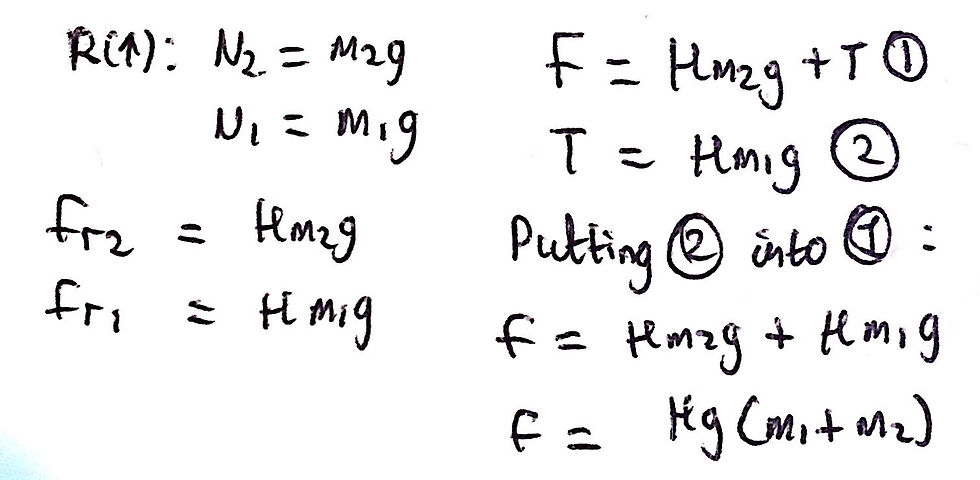 R(↑): N₂ = m₂g
N₁ = m₁g
fr₂ = μm₂g
fr₁ = μm₁g
F = μm₂g + T ①
T = μm₁g ②
Putting ② into ① :
F = μm₂g + μm₁g
F = μg (m₁ + m₂)